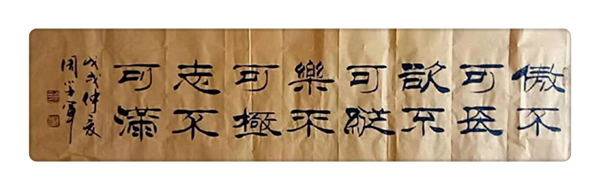 傲不
可長
欲不
可縱
樂不
可極
志不
可滿
戊戌仲夏
周学軍